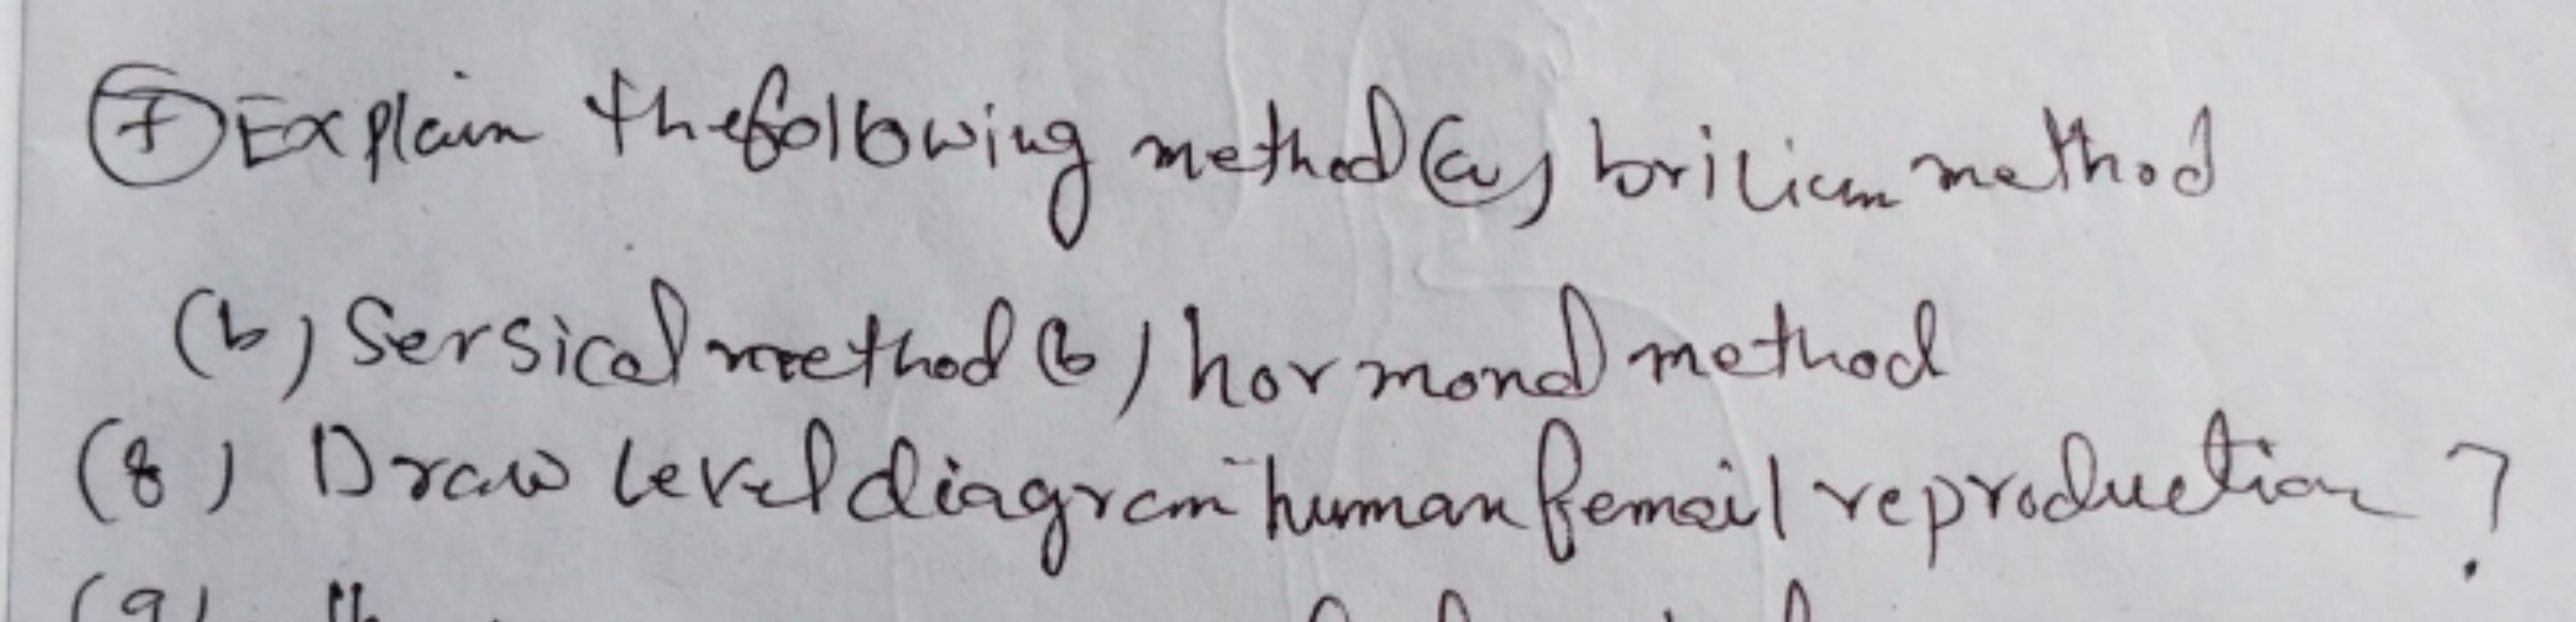 (7) Explain the following method (a) brilicm method
(b) Sersical method (b) hormond method
(8) Draw level diagram human femail reproduction ?
(9)